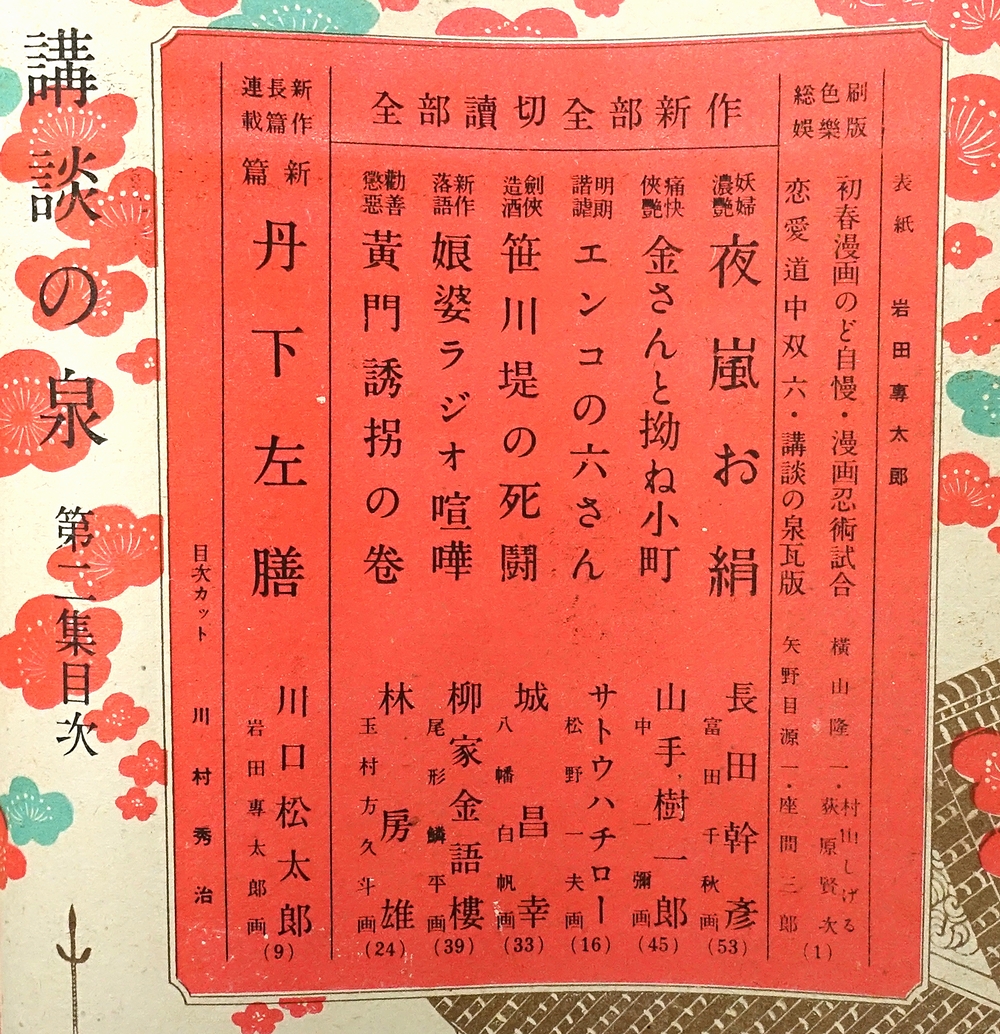 講談の泉 第二集目次
表紙 岩田專太郎
色刷総版娯樂
初春漫画のど自慢・漫画忍術試合 横山隆一・村山しげる 荻原賢次
恋愛道中双六・講談の泉瓦版 矢野目源一・座間三郎 (1)
全部讀切全部新作
妖婦濃艷 夜嵐お絹 長田幹彥 富田千秋画 (53)
痛快俠艷 金さんと拗ね小町 山手樹一郎 中一彌画 (45)
明朗諧謔 エンコの六さん サトウハチロー 松野一夫画 (16)
劍俠造酒 笹川堤の死鬪 城昌幸 八幡白帆画 (33)
新作落語 娘婆ラジオ喧嘩 柳家金語樓 尾形鱗平画 (39)
勸善懲惡 黃門誘拐の卷 林房雄 玉村方久斗画 (24)
新作長篇連載
新篇 丹下左膳 川口松太郎 岩田專太郎画 (9)
目次カット 川村秀治